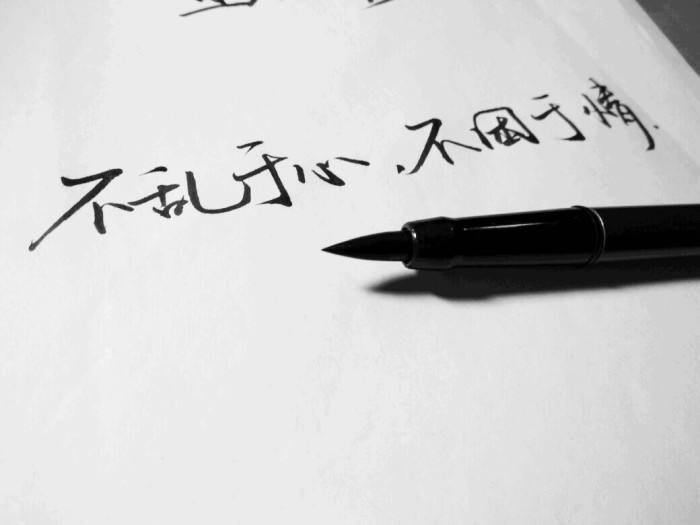 不乱于心，不困于情.